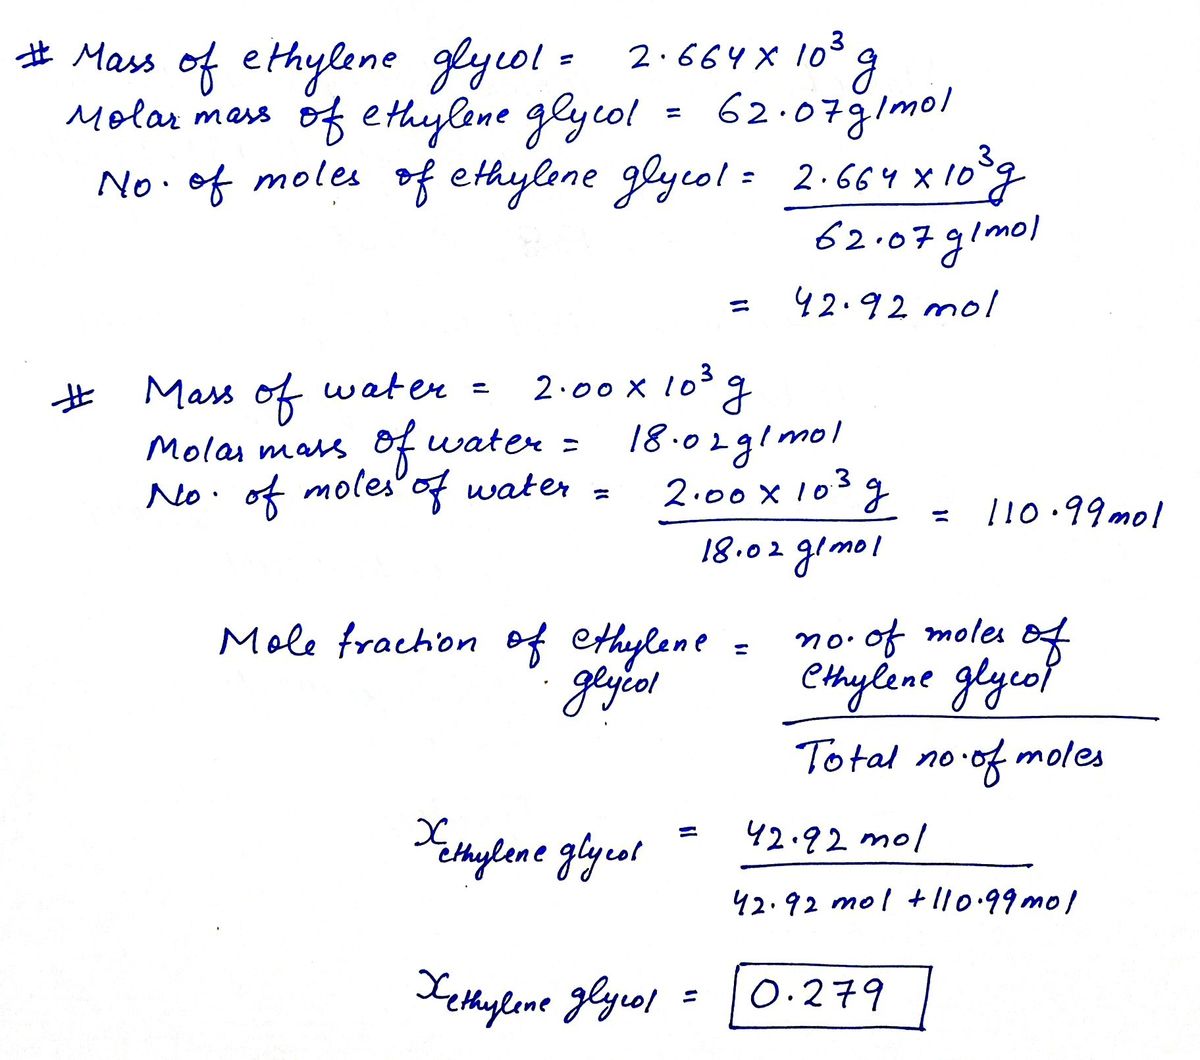 # Mass of ethylene glycol = 2.664 x 10³ g
Molar mass of ethylene glycol = 62.07g/mol
No. of moles of ethylene glycol = 2.664 x 10³g
62.07 g/mol
= 42.92 mol
# Mass of water = 2.00 x 10³ g
Molar mass of water = 18.02g/mol
No. of moles of water = 2.00 x 10³ g = 110.99mol
18.02 g/mol
Mole fraction of ethylene = no. of moles of
glycol ethylene glycol
Total no. of moles
x ethylene glycol = 42.92 mol
42.92 mol + 110.99mol
x ethylene glycol = 0.279